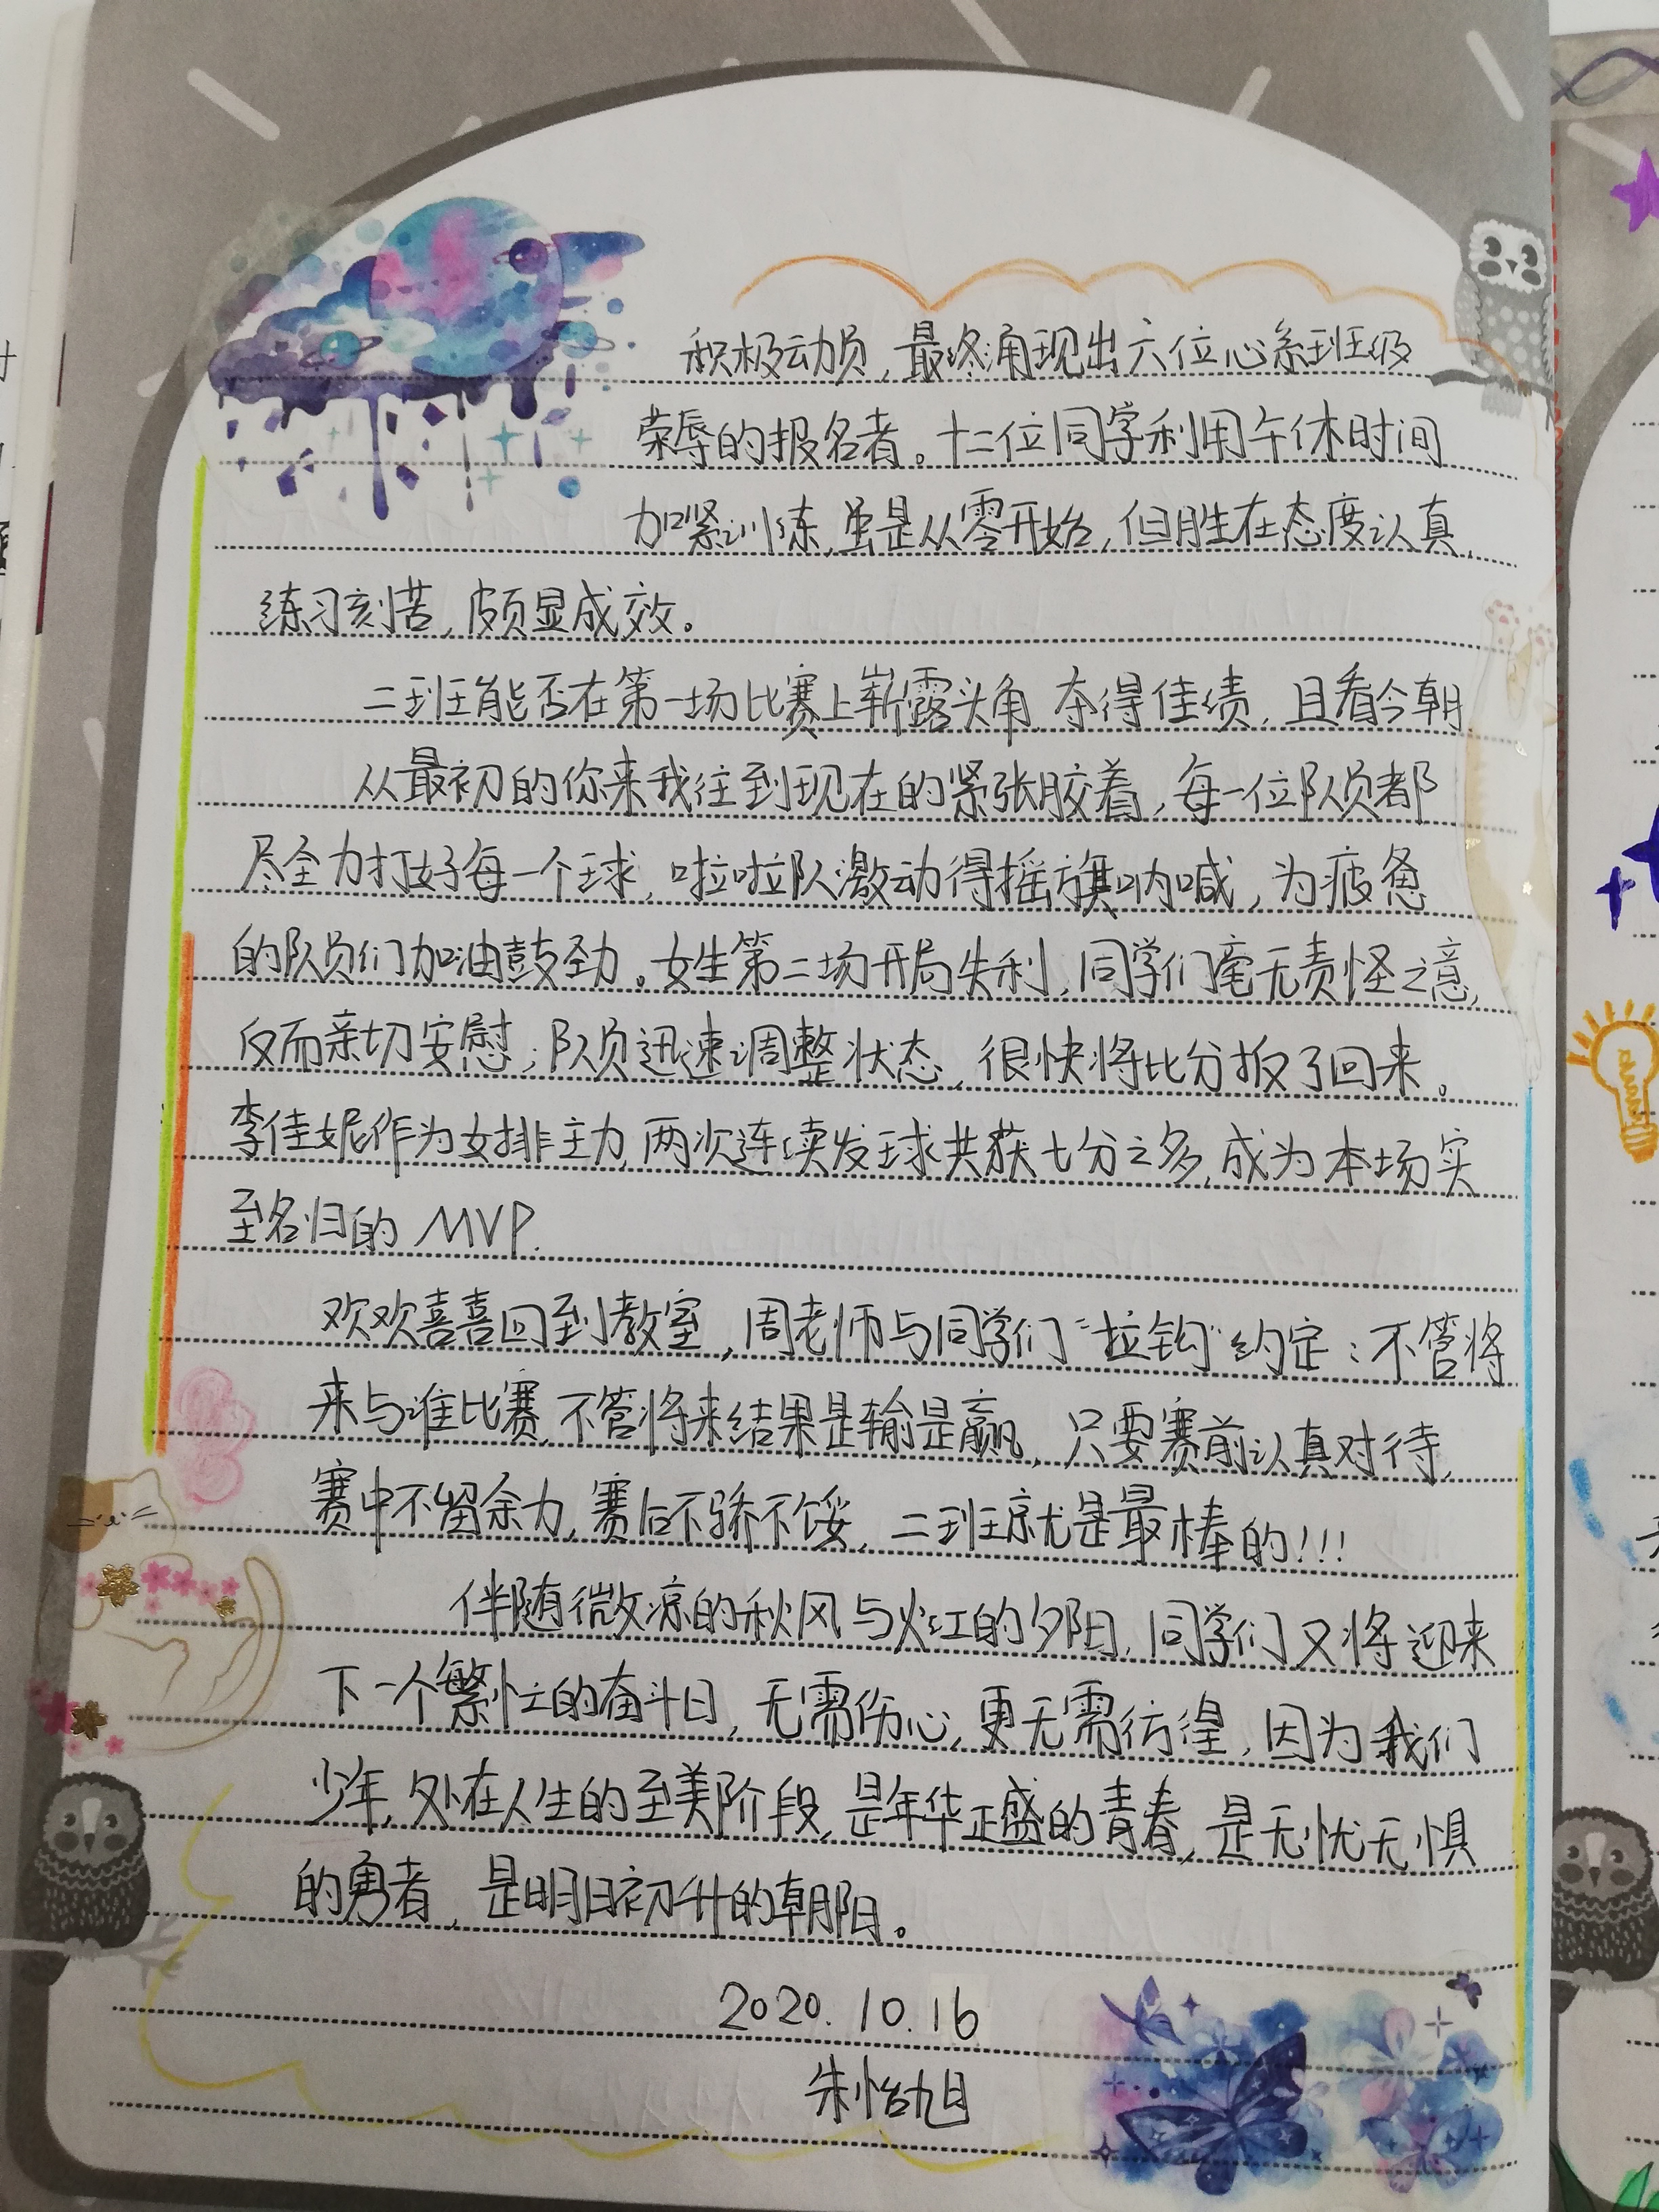 积极动员，最终涌现出六位心系班级
荣辱的报名者。十二位同学利用午休时间
加紧训练，虽是从零开始，但胜在态度认真，
练习刻苦，颇显成效。
二班能否在第一场比赛上崭露头角，夺得佳绩，且看今朝
从最初的你来我往到现在的紧张胶着，每一位队员都
尽全力打好每一个球，啦啦队激动得摇旗呐喊，为疲惫
的队员们加油鼓劲。女生第二场开局失利，同学们毫无责怪之意，
反而亲切安慰；队员迅速调整状态，很快将比分扳了回来。
李佳妮作为女排主力，两次连续发球共获七分之多，成为本场实
至名归的 MVP.
欢欢喜喜回到教室，周老师与同学们“拉钩”约定：不管将
来与谁比赛，不管将来结果是输是赢，只要赛前认真对待，
赛中不留余力，赛后不骄不馁，二班就是最棒的!!!
伴随微凉的秋风与火红的夕阳，同学们又将迎来
下一个繁忙的奋斗日，无需伤心，更无需彷徨，因为我们
少年，处在人生的至美阶段，是年华正盛的青春，是无忧无惧
的勇者，是明日初升的朝阳。
2020.10.16
朱怡旭